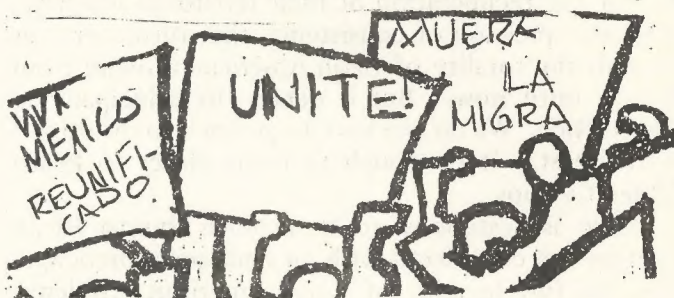 MEXICO
REUNIFI
CADO
UNITE
MUERA
LA
MIGRA